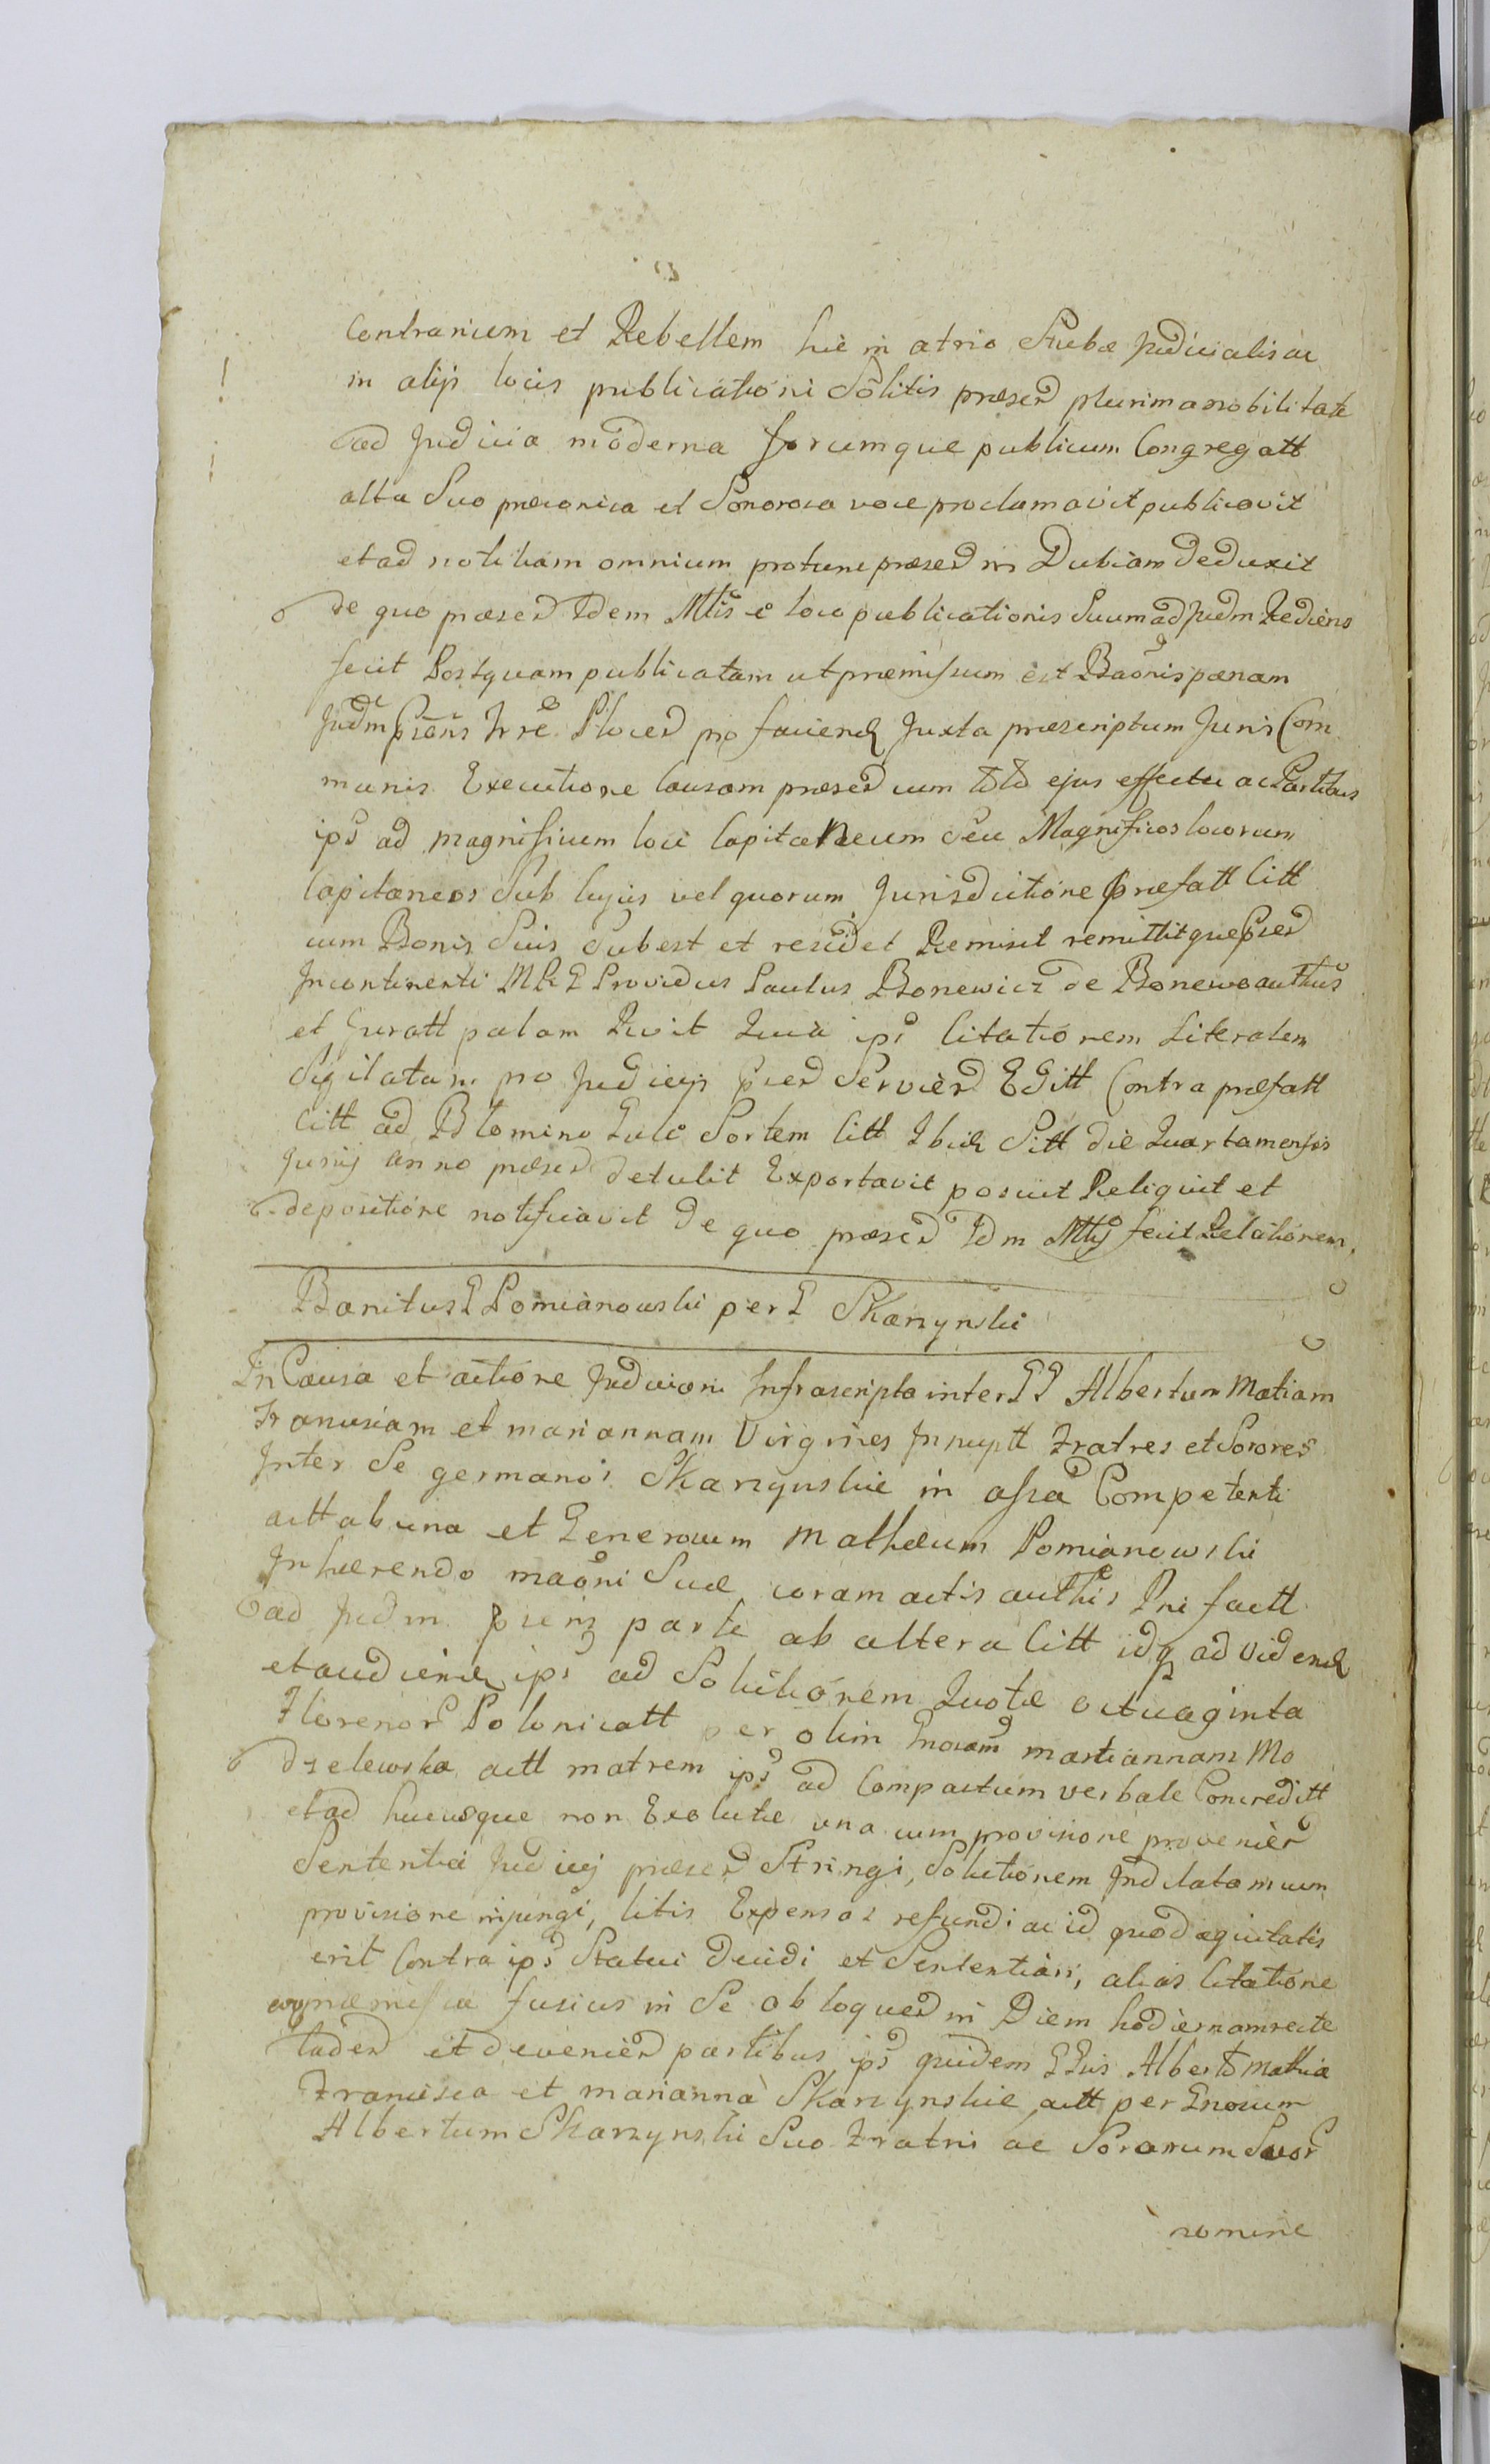 Contrarium et Rebellem hic in atrio Stubæ Judicialis ac
in alijs locis publicationi Solitis præsed plurima nobilitate
ad Judicia moderna forumque publicum Congregatt
alta Suo præconica et Sonorosa voce proclamavit publicavit
et ad notitiam omnium protunc præsed in Dubiam Deduxit
de quo præsed Idem Mlis e loco publicationis Suum ad Judm Rediens
fecit Postquam publicatam ut præmissum est Baonis pænam
Judm Præns Trre Ploced pro faciend Juxta præscriptum Juris Com
munis Executione Causam præsed cum toto ejus effectu ac Partibus
ips ad Magnificum loci Capitaneum Seu Magnificos locorum
Capitaneos Sub cujus vel quorum Jurisdictione præfatt Citt
cum Bonis Suis Subest et residet Remisit remittitque Præsed
Incontinenti M R G Providus Paulus Bonewicz de Bonewo authus
et Juratt palam Rvit Quia ips Citationem Literalem
Sigilatam pro Judicijs præd Serviend Editt Contra præfatt
Citt ad Blomino Gule Sortem Citt Ibid Sitt die Quarta mensis
Junij anno præsed detulit Exportavit posuit Reliquit et
depositione notificavit De quo præsed Idm Mtij fecit Relationem.
Banitus G Pomianowski per G Skarzynski
In Causa et actione Judiciario Infrascripta inter GG Albertum Matiam
Francisiam et mariannam Virgines Innuptt Fratres et Sorores
Inter Se germanos Skarzynskie in assa Competenti
actt ab una et Generosum Mathæum Pomianowski
Inhærendo maoni Suæ coram actis authis Pni factt
ad Judm præns parte ab altera Citt idq ad Vidend
et audiend ips ad Solutionem Quotæ octuaginta
Florenor Polonicatt per olim Gnosam martiannam Mo
dzelewska actt matrem ips ad Compactum verbale Concreditt
et ad hucusque non Exolutæ una cum provisione proveniend
Sententia Judicij præsed Stringi, Solutionem Indilatam cum
provisione injungi, litis Expensas refundi ac id quod æquitatis
erit Contra ips Statui Decidi et Sententiari, alias Citatione
præmissa fusius in Se obloqued in Diem hodiernam recte
Caded et deveniend partibus ips quidem GGis Alberto Mathia
Francisca et marianna Skarzynskie actt per Gnosum
Albertum Skarzynski Suo Fratris ac Sororum Suor
nomine